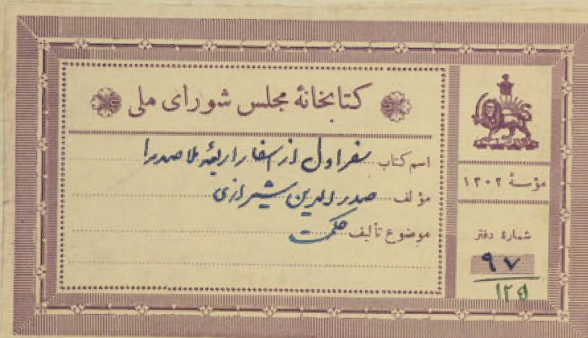 کتابخانهٔ مجلس شورای ملی
اسم کتاب سفر اول از اسفار اربعهٔ ملا صدرا
مؤلف صدرالدین شیرازی
موضوع تألیف حکمت
مؤسسهٔ ۱۳۰۲
شمارهٔ دفتر
۹۷
۱۲۵